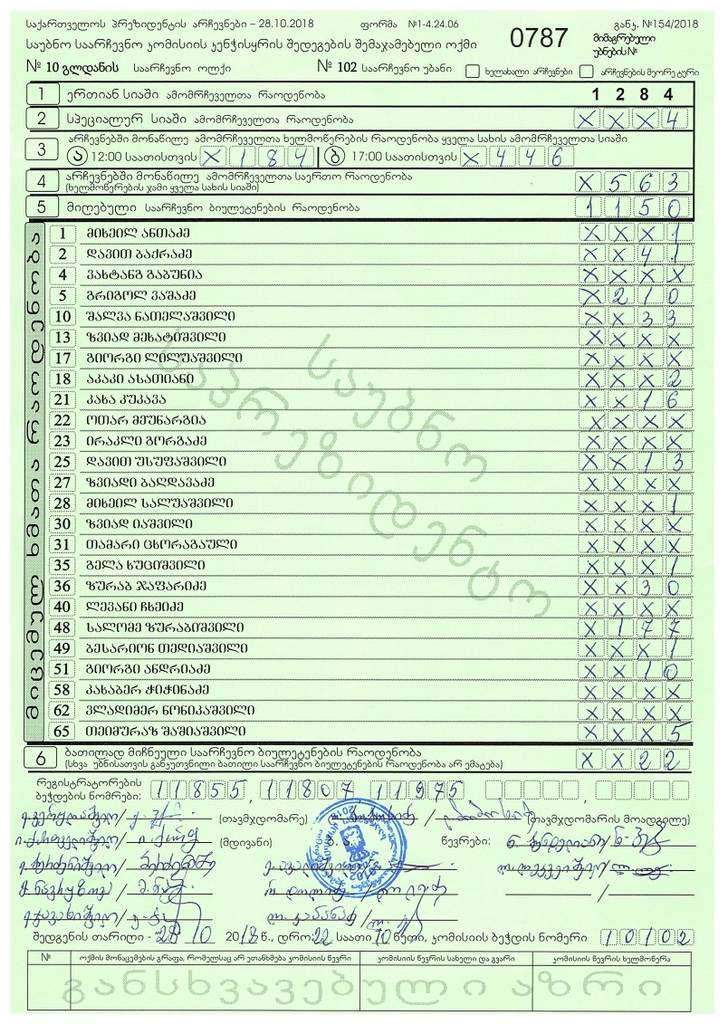 საქართველოს პრეზიდენტის არჩევნები – 28.10.2018 ფორმა №1-4.24.06 განკ. №154/2018
საუბნო საარჩევნო კომისიის კენჭისყრის შედეგების შემაჯამებელი ოქმი 0787 მიმაგრებული უბნების №
№ 10 გლდანის საარჩევნო ოლქი № 102 საარჩევნო უბანი ხელახალი არჩევნები არჩევნების მეორე ტური
1 ერთიან სიაში ამომრჩეველთა რაოდენობა 1 2 8 4
2 სპეციალურ სიაში ამომრჩეველთა რაოდენობა X X X 4
3 არჩევნებში მონაწილე ამომრჩეველთა ხელმოწერების რაოდენობა ყველა სახის ამომრჩეველთა სიაში
ა 12:00 საათისთვის X 1 8 4 ბ 17:00 საათისთვის X 4 4 6
4 არჩევნებში მონაწილე ამომრჩეველთა საერთო რაოდენობა X 5 6 3
(ხელმოწერების ჯამი ყველა სახის სიაში)
5 მიღებული საარჩევნო ბიულეტენების რაოდენობა 1 1 5 0
მიცემულ ხმათა რაოდენობა
1 მიხეილ ანთაძე X X X 1
2 დავით ბაქრაძე X X 4 1
4 ვახტანგ გაბუნია X X X X
5 გრიგოლ ვაშაძე X 2 1 0
10 შალვა ნათელაშვილი X X 3 3
13 ზვიად მეხატიშვილი X X X X
17 გიორგი ლილუაშვილი X X X X
18 აკაკი ასათიანი X X X 2
21 კახა კუკავა X X 1 6
22 ოთარ მეუნარგია X X X X
23 ირაკლი გორგაძე X X X X
25 დავით უსუფაშვილი X X 1 3
27 ზვიადი ბაღდავაძე X X X X
28 მიხეილ სალუაშვილი X X X 1
30 ზვიად იაშვილი X X X X
31 თამარი ცხორაგაული X X X X
35 გელა ხუციშვილი X X X 1
36 ზურაბ ჯაფარიძე X X 3 0
40 ლევანი ჩხეიძე X X X X
48 სალომე ზურაბიშვილი X 1 7 7
49 ბესარიონ თედიაშვილი X X X 1
51 გიორგი ანდრიაძე X X 1 0
58 კახაბერ ჭიჭინაძე X X X X
62 ვლადიმერ ნონიკაშვილი X X X X
65 თეიმურაზ შაშიაშვილი X X X 5
საუბნო
საპრეზიდენტო
6 ბათილად მიჩნეული საარჩევნო ბიულეტენების რაოდენობა X X 2 2
(სხვა უბნისათვის განკუთვნილი ბათილი საარჩევნო ბიულეტენების რაოდენობა არ ემატება)
რეგისტრატორების
ბეჭდების ნომრები: 11855 11807 11975
(თავმჯდომარე) (თავმჯდომარის მოადგილე)
(მდივანი) წევრები:
შედგენის თარიღი - 28 10 2018 წ., დრო: 22 საათი 10 წუთი, კომისიის ბეჭდის ნომერი 10102
№ ოქმის მონაცემების გრაფა, რომელსაც არ ეთანხმება კომისიის წევრი კომისიის წევრის სახელი და გვარი კომისიის წევრის ხელმოწერა
განსხვავებული აზრი